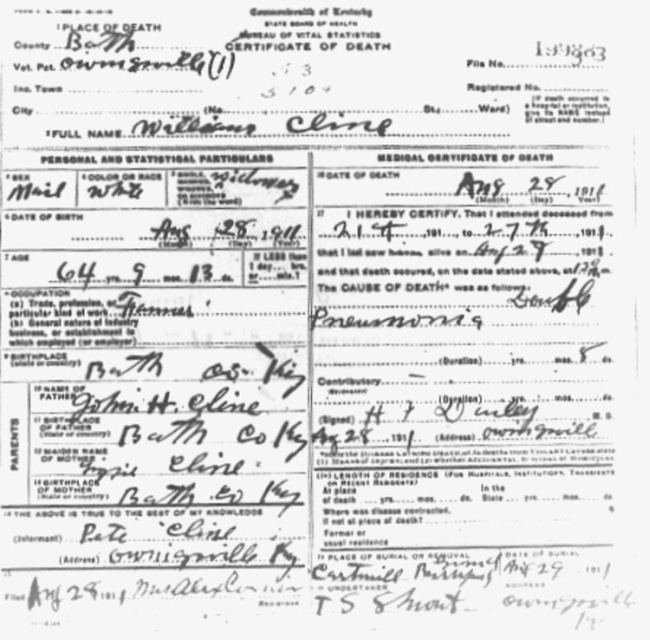 Commonwealth of Kentucky
STATE BOARD OF HEALTH
BUREAU OF VITAL STATISTICS
CERTIFICATE OF DEATH
1 PLACE OF DEATH
County Bath
Vot. Pct. Owingsville (1)
Inc. Town
City (No. St.; Ward)
File No.
Registered No.
[If death occurred in a hospital or institution, give its NAME instead of street and number.]
2 FULL NAME William Cline
PERSONAL AND STATISTICAL PARTICULARS
3 SEX Mail
4 COLOR OR RACE White
5 SINGLE, MARRIED, WIDOWED, OR DIVORCED (Write the word) Widower
6 DATE OF BIRTH
Aug 28, 1911
(Month) (Day) (Year)
7 AGE
64 yrs. 9 mos. 13 ds.
If LESS than 1 day... hrs. or... min.?
8 OCCUPATION
(a) Trade, profession, or particular kind of work Farmer
(b) General nature of industry business, or establishment in which employed (or employer)
9 BIRTHPLACE
(State or country) Bath co. Ky
PARENTS
10 NAME OF FATHER John H. Cline
11 BIRTHPLACE OF FATHER
(State or country) Bath Co Ky
12 MAIDEN NAME OF MOTHER Cline
13 BIRTHPLACE OF MOTHER
(State or country) Bath Co Ky
14 THE ABOVE IS TRUE TO THE BEST OF MY KNOWLEDGE
(Informant) Pete Cline
(Address) Owingsville Ky
15
Filed Aug 28 1911 Mrs Alex Conner
REGISTRAR
MEDICAL CERTIFICATE OF DEATH
16 DATE OF DEATH
Aug 28, 1911
(Month) (Day) (Year)
17 I HEREBY CERTIFY, That I attended deceased from
21st, 191 , to 27th, 1911,
that I last saw alive on Aug 27, 1911,
and that death occurred, on the date stated above, at m.
The CAUSE OF DEATH* was as follows:
Double
Pneumonia
(Duration) yrs. mos. 8 ds.
Contributory
(Duration) yrs. mos. ds.
(Signed) H F M. D.
Aug 28, 1911 (Address) Owingsville
18 LENGTH OF RESIDENCE (For Hospitals, Institutions, Transients or Recent Residents)
At place of death yrs. mos. ds. In the State yrs. mos. ds.
Where was disease contracted,
if not at place of death?
Former or
usual residence
19 PLACE OF BURIAL OR REMOVAL
Cartmill
DATE OF BURIAL
Aug 29 1911
20 UNDERTAKER
T S Shrout
ADDRESS
Owingsville
Ky